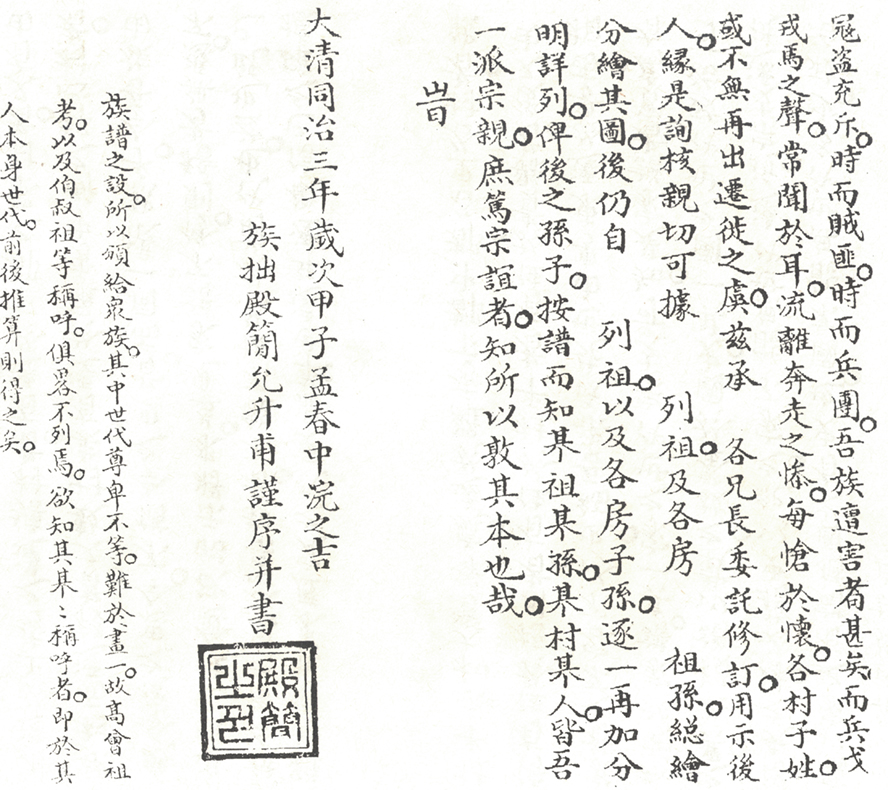 寇盗充斥。時而賊匪。時而兵團。吾族遭害者甚矣。而兵戈
戎馬之聲。常聞於耳。流離奔走之慘。每愴於懷。各村子姓。
或不無再出遷徙之虞。兹承 各兄長委託修訂。用示後
人。縁是詢核親切可據 列祖。及各房 祖孫。総繪
分繪其圖。後仍自 列祖。以及各房子孫。逐一再加分
明詳列。俾後之孫子。按譜而知某祖某孫。某村某人。皆吾
一派宗親。庶篤宗誼者。知所以敦其本也哉。
旹
大清同治三年歲次甲子孟春中浣之吉
族拙殿簡允升甫謹序并書
殿簡
族譜之設。所以頒給衆族。其中世代尊卑不等。難於畫一。故高曾祖
考。以及伯叔祖等稱呼。俱畧不列焉。欲知其某〻稱呼者。即於其
人本身世代。前後推算則得之矣。